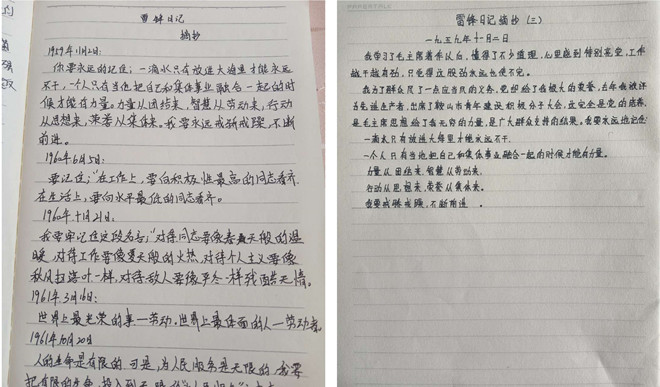 雷锋日记
摘抄
1959年11月2日:
你要永远的记住:一滴水只有放进大海里才能永远
不干,一个人只有当他把自己和集体事业融合一起的时
候才能有力量。力量从团结来,智慧从劳动来,行动
从思想来,荣誉从集体来。我要永远戒骄戒躁,不断
前进。
1960年6月5日:
要记住:"在工作上,要向积极性最高的同志看齐
在生活上,要向水平最低的同志看齐。
1960年10月21日:
我要牢记住这段名言:"对待同志要像春天般的温
暖,对待工作要像夏天般的火热,对待个人主义要像
秋风扫落叶一样,对待敌人要像严冬一样残酷无情。
1961年3月16日:
世界上最光荣的事—劳动。世界上最体面的人—劳动者。
1961年10月20日
人的生命是有限的 可是,为人民服务是无限的,我要
把有限的生命,投入到无限的"为人民服务"之中去
雷锋日记摘抄(三)
一九五九年十一月二日
我学习了毛主席著作以后,懂得了不少道理,心里感到特别亮堂,工作
越干越有劲,只觉得这股劲永远也使不完。
我为了群众尽了一点应当尽的义务,党却给了我极大的荣誉,去年我被评
为先进生产者,出席了鞍山市青年建设积极分子大会,这完全是党的培养,
是毛主席思想给了我无穷的力量,是广大群众支持的结果。我要永远地记住:
一滴水只有放进大海里才能永远不干.
一个人只有当他把自己和集体事业融合一起的时候才能有力量.
力量从团结来,智慧从劳动来.
行动从思想来,荣誉从集体来.
我要戒骄戒躁,不断前进。